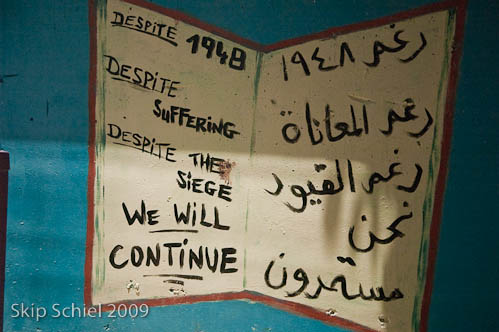 DESPITE 1948
DESPITE
SUFFERING
DESPITE THE
SIEGE
WE WILL
CONTINUE
رغم ١٩٤٨
رغم المعاناة
رغم القيود
نحن
مستمرون
Skip Schiel 2009